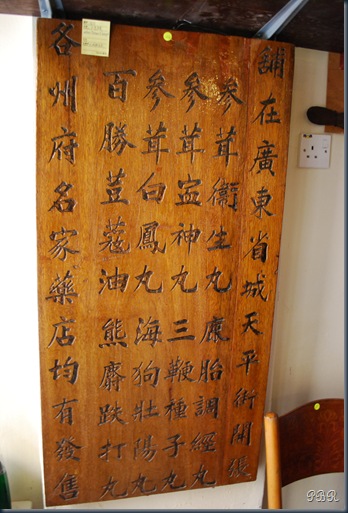 舖在廣東省城天平街開張
參茸衞生丸 康胎調經丸
參茸寍神丸 三鞭種子丸
參茸白鳳丸 海狗壯陽丸
百勝荳蔻油 熊麝跌打丸
各州府名家藥店均有發售
PBR